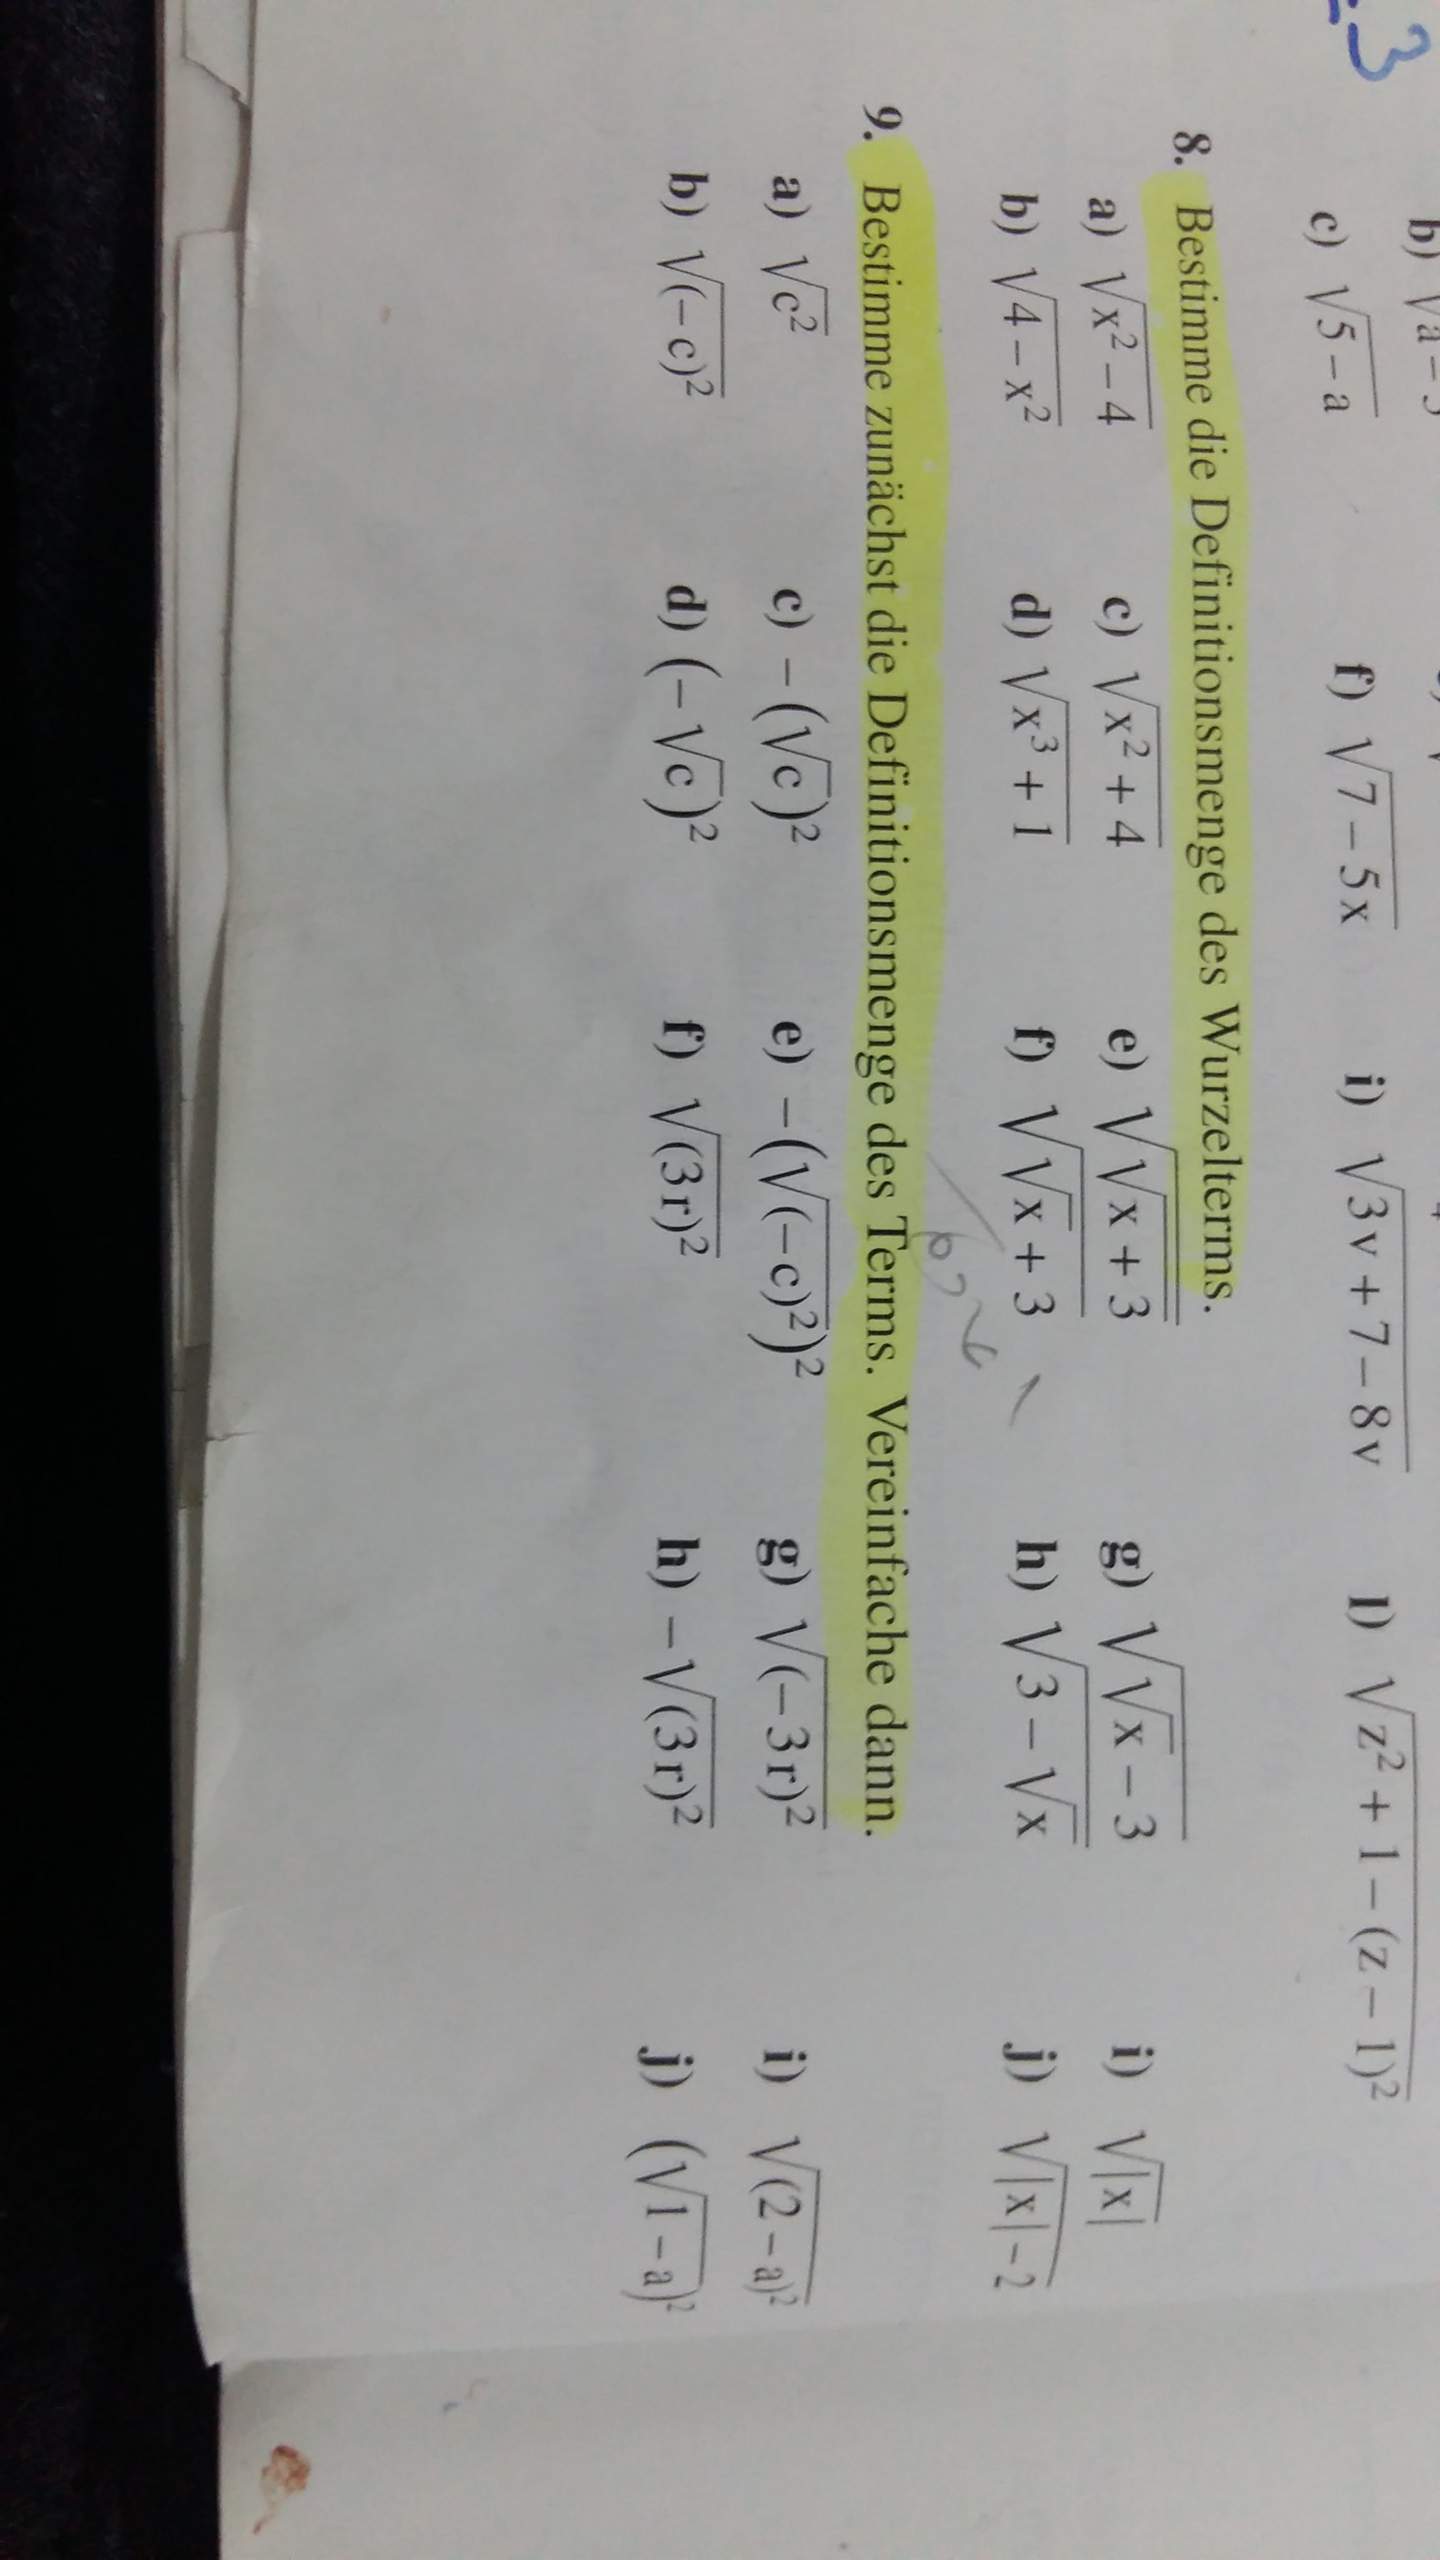 3
b) √a – 
c) √5 – a f) √7 – 5x i) √3v + 7 – 8v l) √z² + 1 – (z – 1)²
8. Bestimme die Definitionsmenge des Wurzelterms.
a) √x² – 4 c) √x² + 4 e) √√x + 3 g) √√x – 3 i) √|x|
b) √4 – x² d) √x³ + 1 f) √√x + 3 h) √3 – √x j) √|x| – 2
9. Bestimme zunächst die Definitionsmenge des Terms. Vereinfache dann.
a) √c² c) – (√c)² e) – (√(–c)²)² g) √(–3r)² i) √(2 – a)²
b) √(–c)² d) (– √c)² f) √(3r)² h) – √(3r)² j) (√1 – a)²